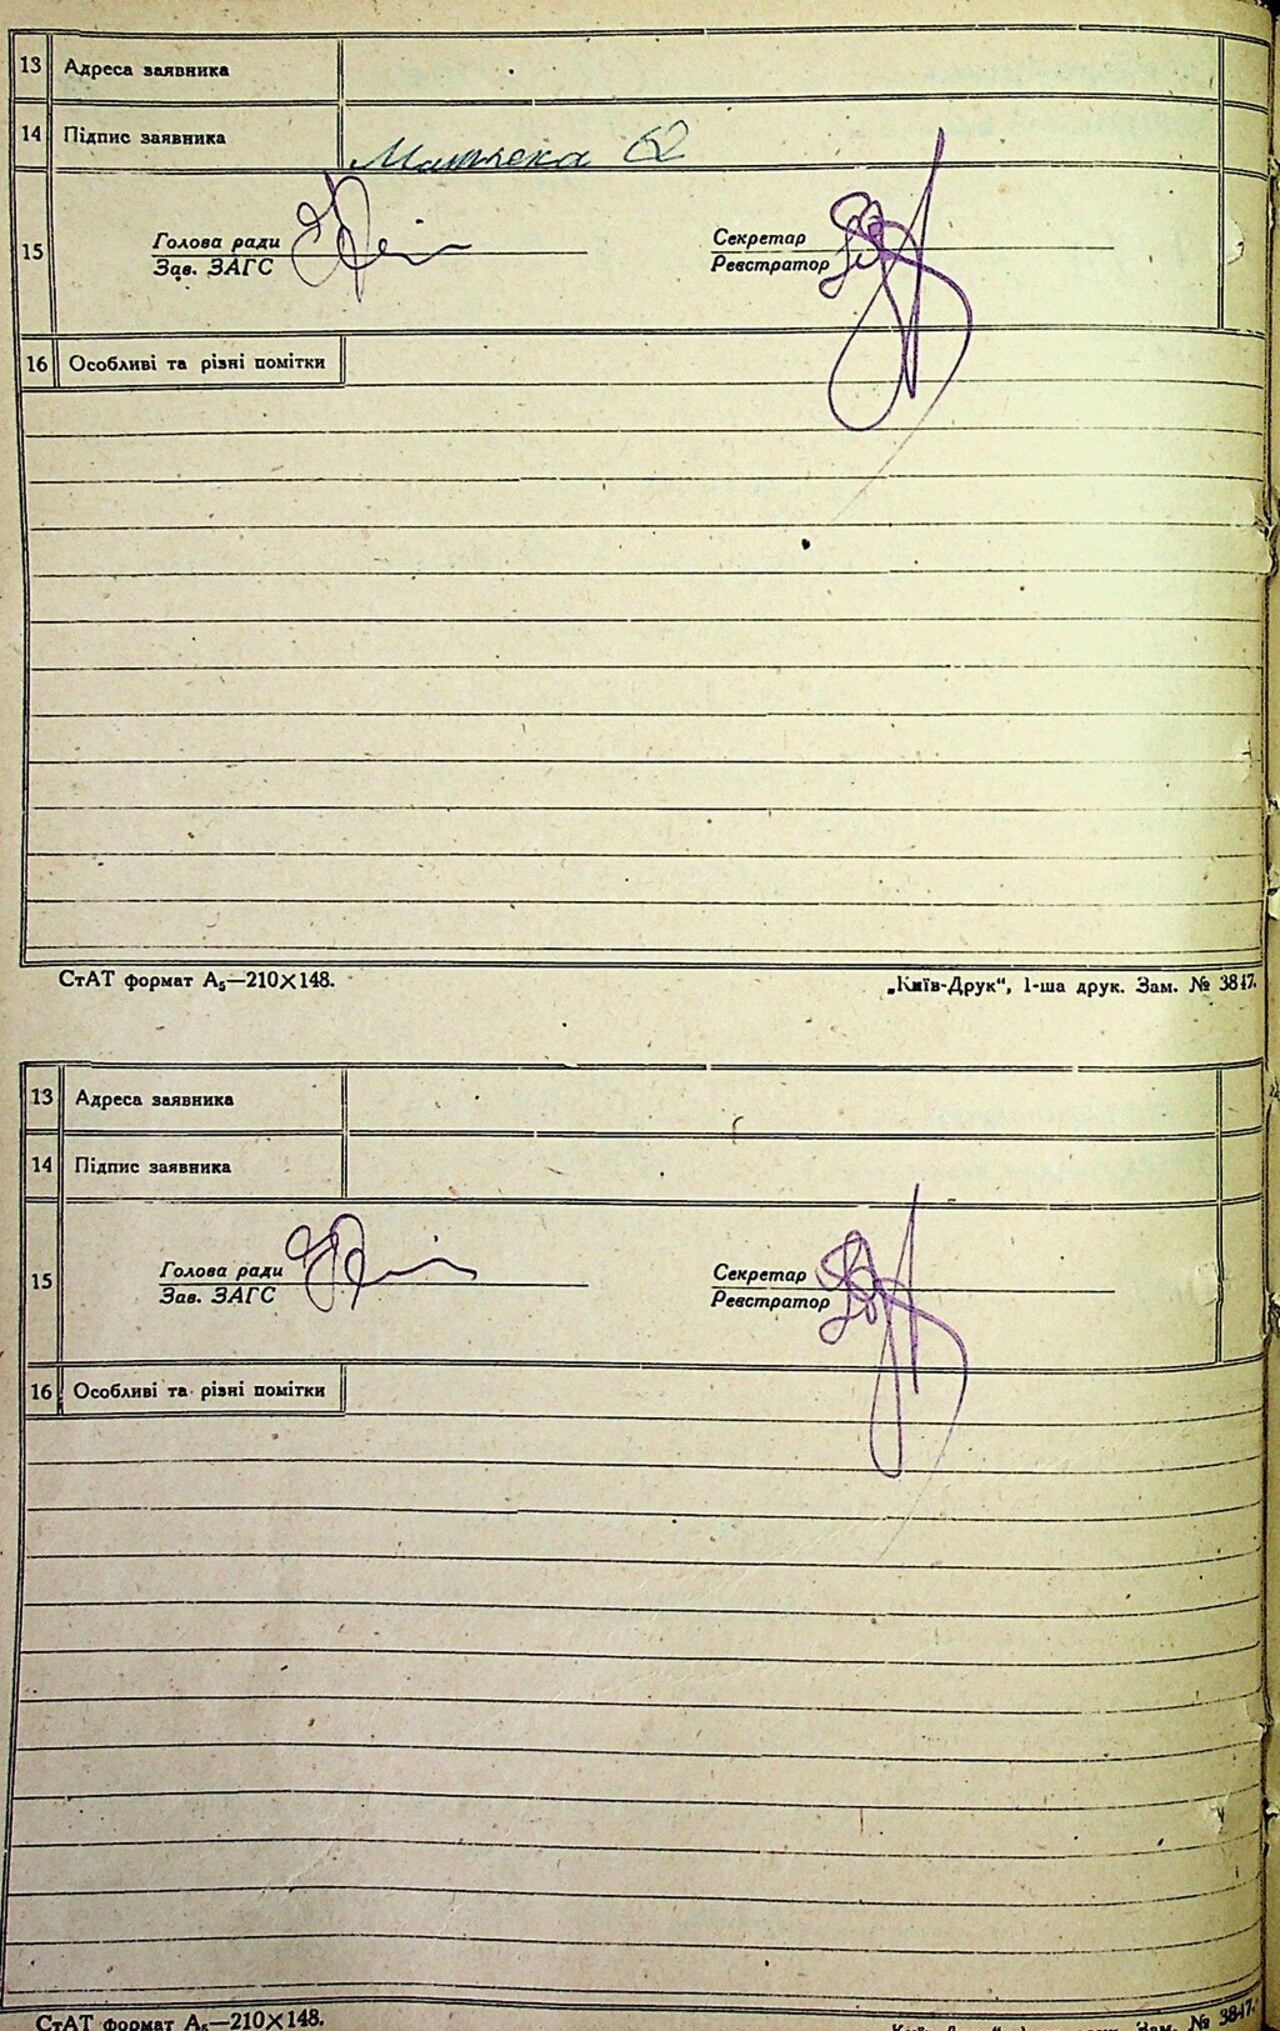 13 Адреса заявника
14 Підпис заявника
15 Голова ради
Зав. ЗАГС
Секретар
Реєстратор
16 Особливі та різні помітки
СтАТ формат А₅—210×148.
„Київ-Друк“, 1-ша друк. Зам. № 3847.
13 Адреса заявника
14 Підпис заявника
15 Голова ради
Зав. ЗАГС
Секретар
Реєстратор
16 Особливі та різні помітки
СтАТ формат А₅—210×148.
Зам. № 3847.